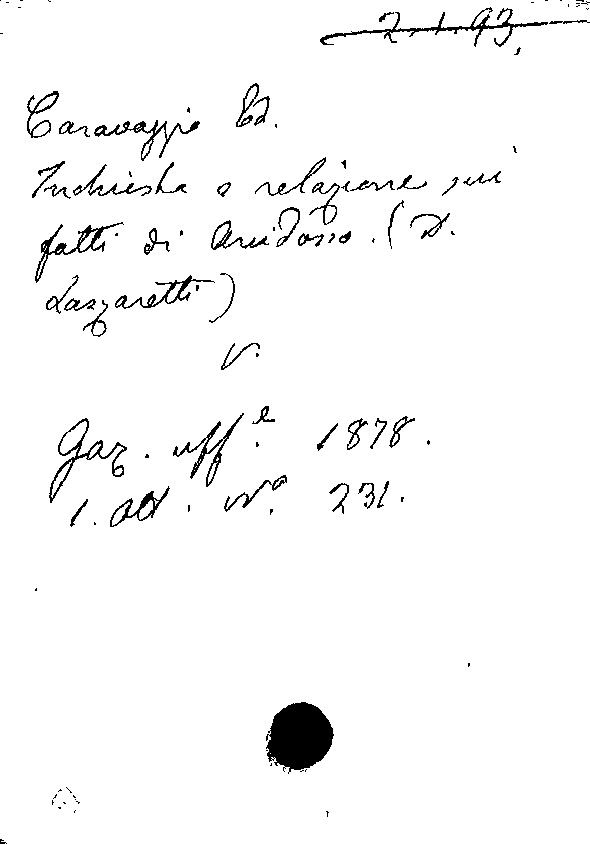 2.1.93.
Caravaggio Ed.
Inchiesta e relazione sui
fatti di Arcidosso. (D.
Lazzaretti)
V.
Gaz. uff.e 1878.
1. Ott. No. 231.